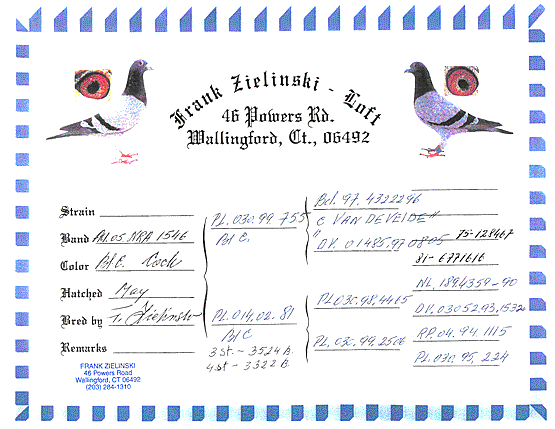 Frank Zielinski - Loft
46 Powers Rd.
Wallingford, Ct., 06492
Strain
Band ARA 1546
Color Cock
Hatched May
Bred by Zielinski
Remarks
FRANK ZIELINSKI
46 Powers Road
Wallingford, CT 06492
(203) 284-1310
PL. 030.99.755
Bl C.
PL. 014.02.81
Bl C
3 st. - 3524 B.
4 st - 3322 B.
Bel. 97. 4322296
C VAN DE VELDE "
" DV. 01485.97 0805
PL 030.98.4465
PL. 030.99.2506
75-128467
81-6771616
NL. 1894359-90
DV. 03052.93.1532
RP. 04.94.1115
PL. 030.95.224